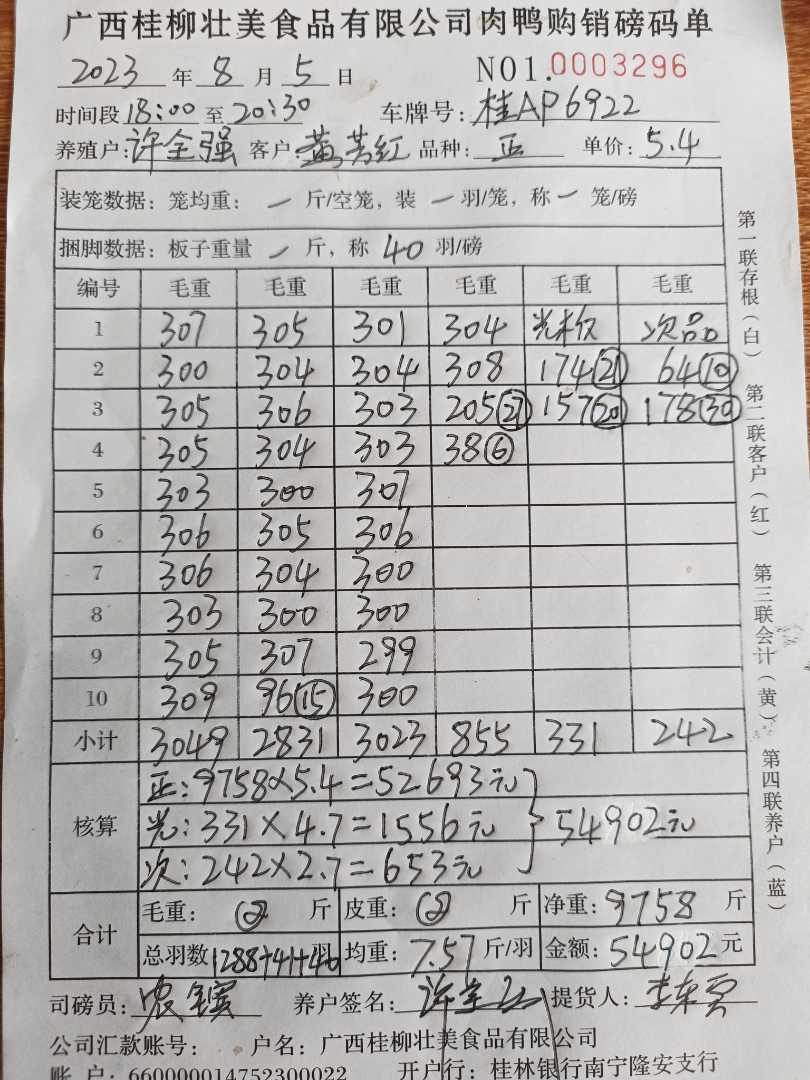 广西桂柳壮美食品有限公司肉鸭购销磅码单
2023 年 8 月 5 日 NO1.0003296
时间段 18:00 至 20:30 车牌号: 桂AP6922
养殖户: 许全强 客户: 黄芳红 品种: 正 单价: 5.4
装笼数据: 笼均重: 一 斤/空笼, 装 一 羽/笼, 称 一 笼/磅
捆脚数据: 板子重量 一 斤, 称 40 羽/磅
编号 毛重 毛重 毛重 毛重 毛重 毛重
1 307 305 301 304 光板 次品
2 300 304 304 308 174(21) 64(10)
3 305 306 303 205(27) 157(20) 178(30)
4 305 304 303 38(6)
5 303 300 307
6 306 305 306
7 306 304 300
8 303 300 300
9 305 307 299
10 309 96(15) 300
小计 3049 2831 3023 855 331 242
核算 正: 9758×5.4=52693元
光: 331×4.7=1556元 } 54902元
次: 242×2.7=653元
合计 毛重: 斤 皮重: 斤 净重: 9758 斤
总羽数 1288+41+40 羽 均重: 7.57 斤/羽 金额: 54902 元
司磅员: 养户签名: 提货人:
公司汇款账号: 户名: 广西桂柳壮美食品有限公司
账 户: 660000014752300022 开户行: 桂林银行南宁隆安支行
第一联存根(白)
第二联客户(红)
第三联会计(黄)
第四联养户(蓝)